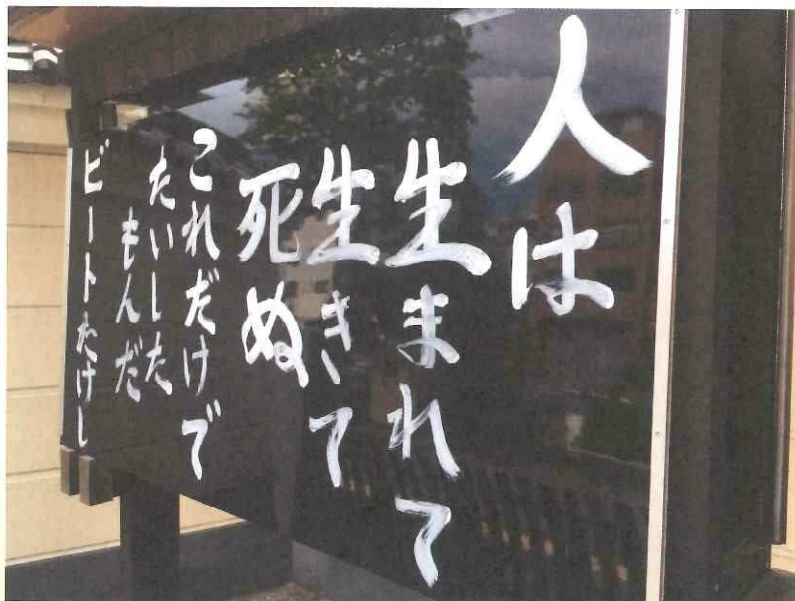 人は
生まれて
生きて
死ぬ
これだけで
たいした
もんだ
ビートたけし